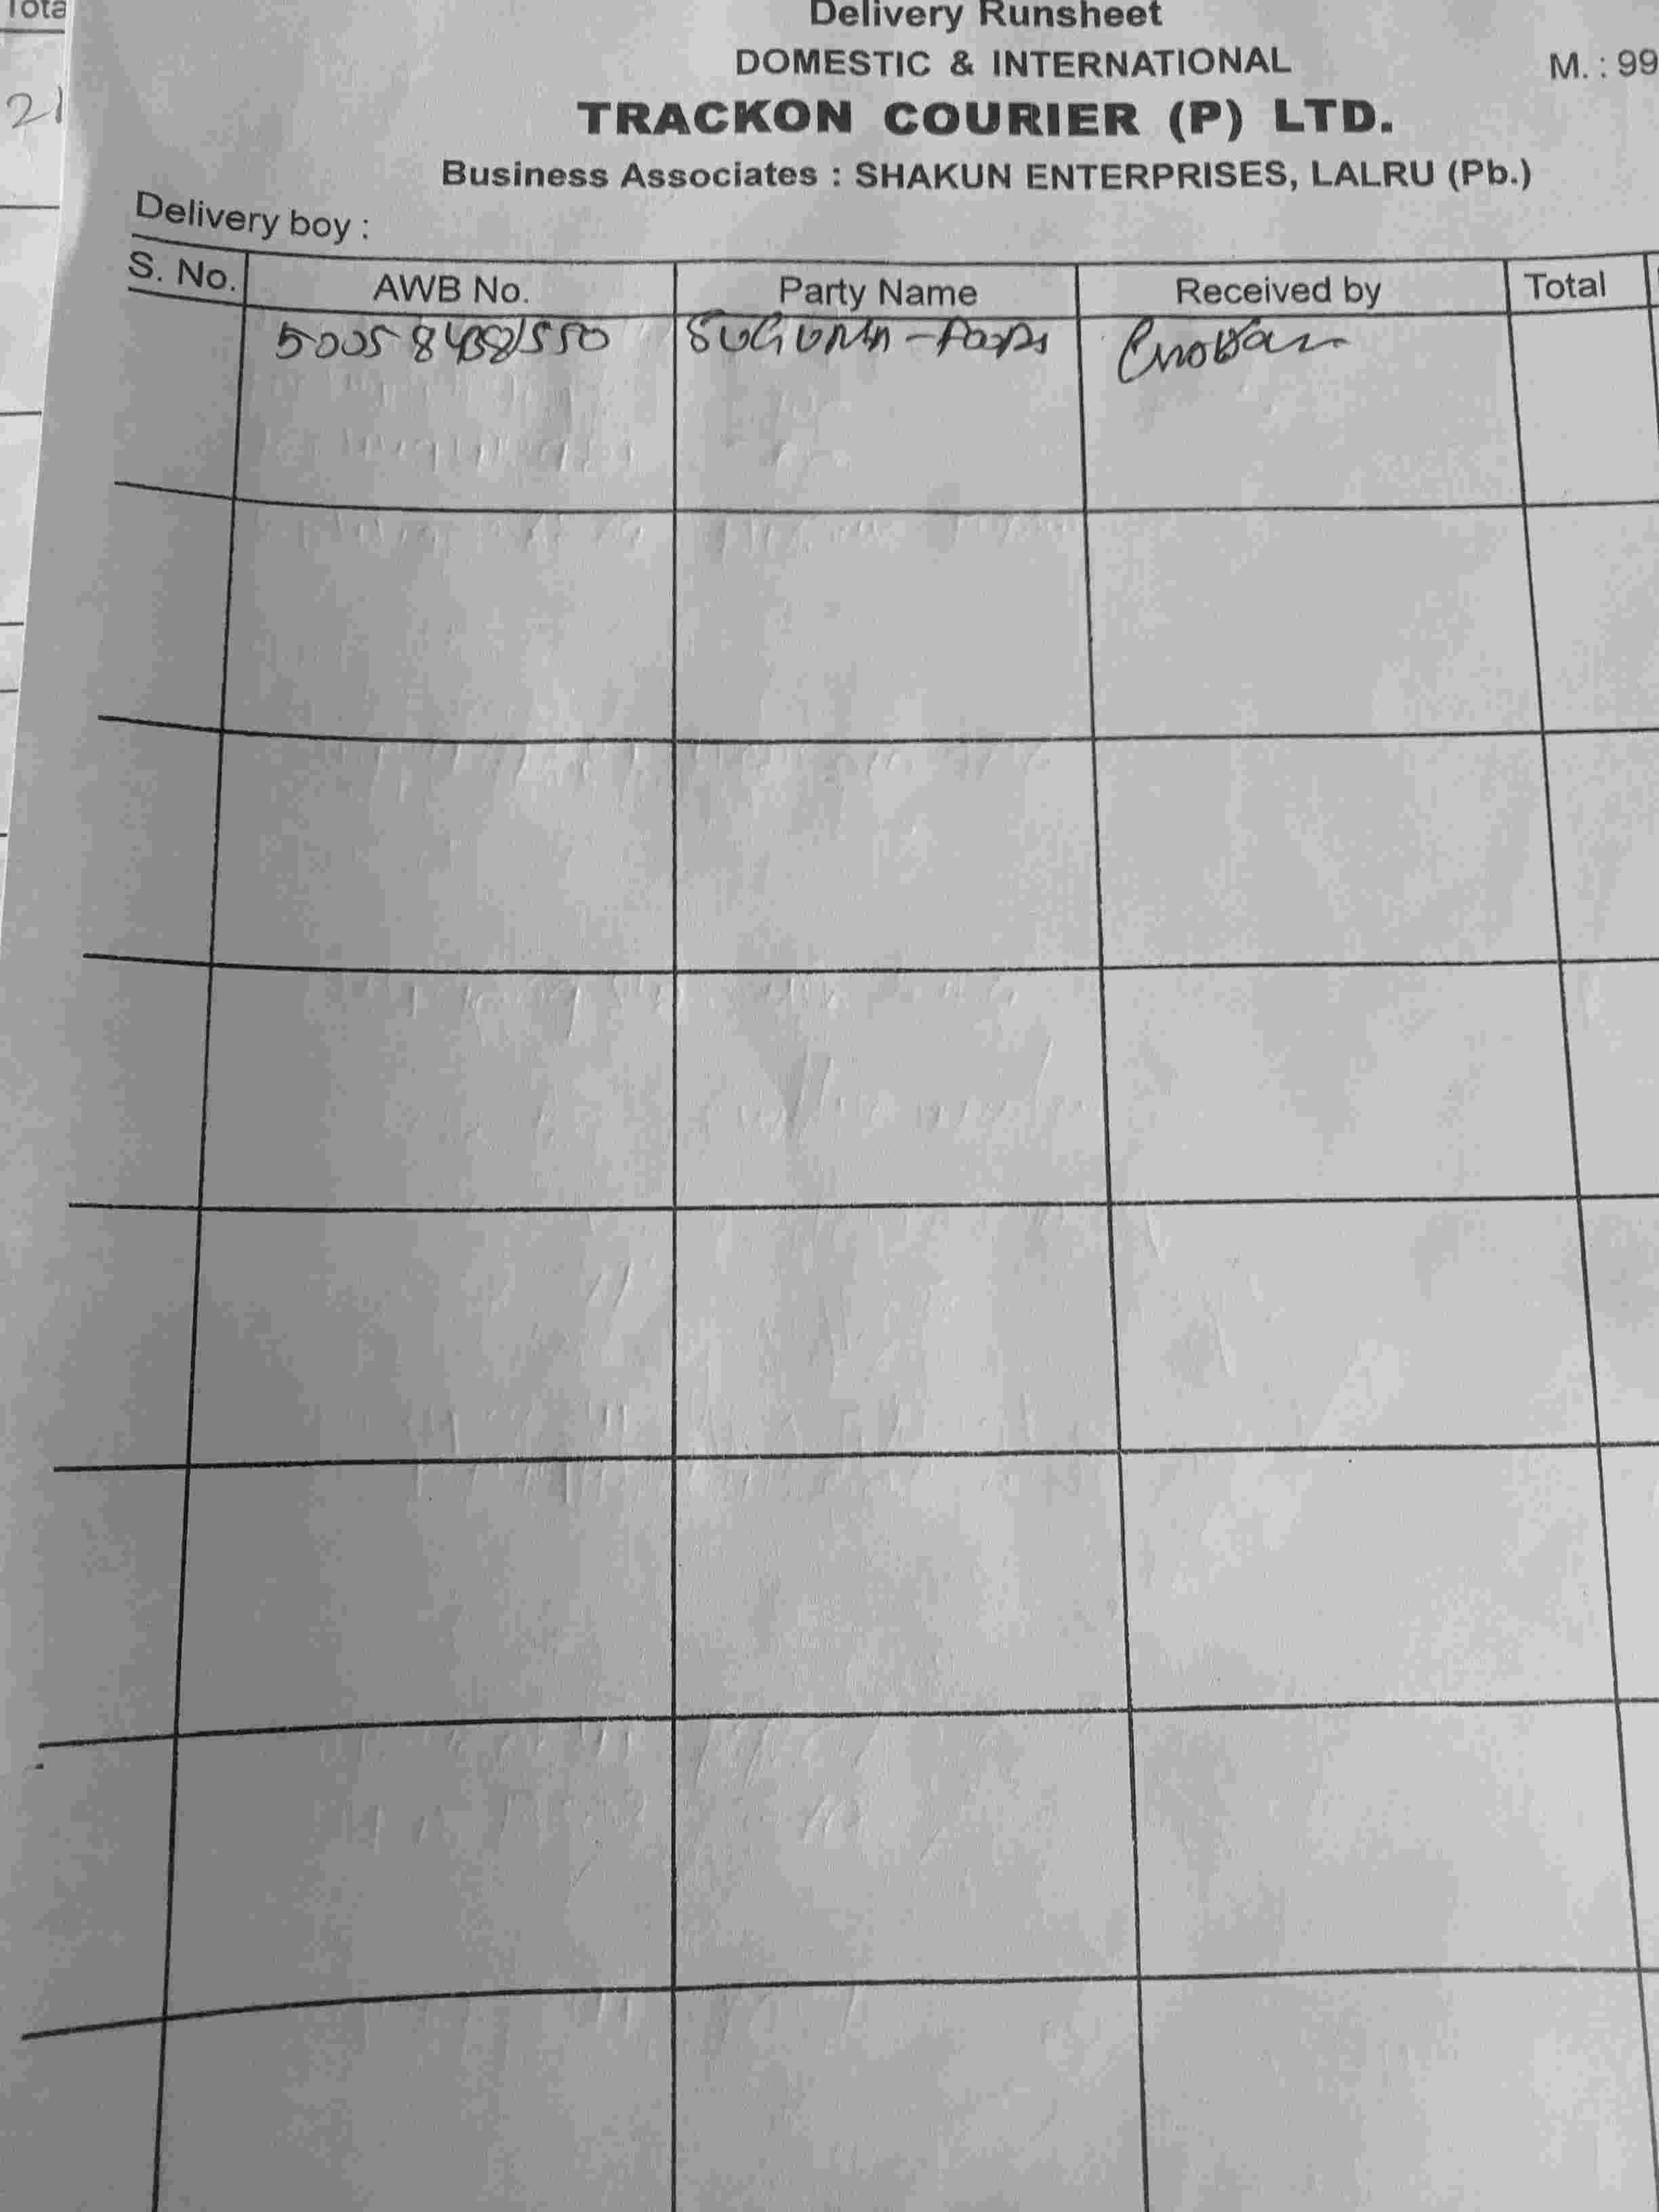 Tota
21
Delivery Runsheet
DOMESTIC & INTERNATIONAL
M. : 99
TRACKON COURIER (P) LTD.
Business Associates : SHAKUN ENTERPRISES, LALRU (Pb.)
Delivery boy :
S. No. AWB No. Party Name Received by Total